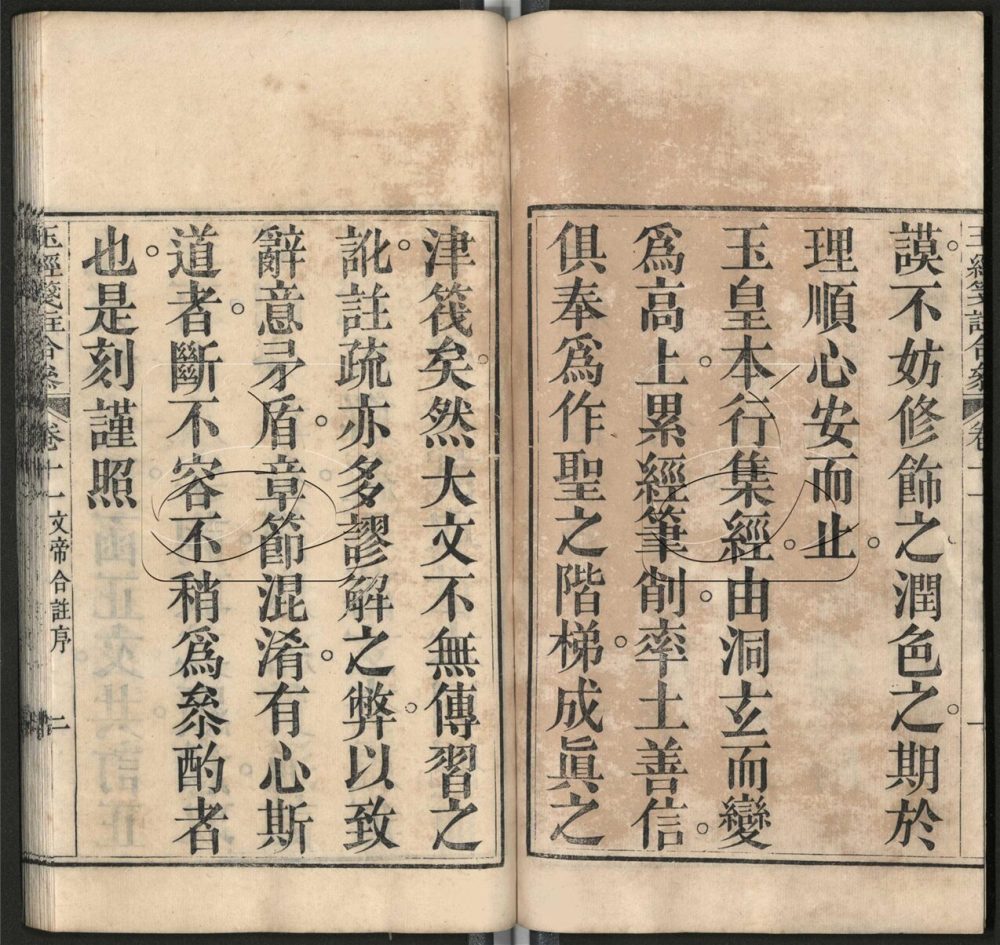 謨不妨修飾之潤色之期於
理順心安而止
玉皇本行集經由洞玄而變
爲高上累經筆削率土善信
俱奉爲作聖之階梯成眞之
津筏矣然大文不無傳習之
訛註疏亦多謬解之弊以致
辭意矛盾章節混淆有心斯
道者斷不容不稍爲叅酌者
也是刻謹照
玉經箋註合叅 卷十一 文帝合註序 二